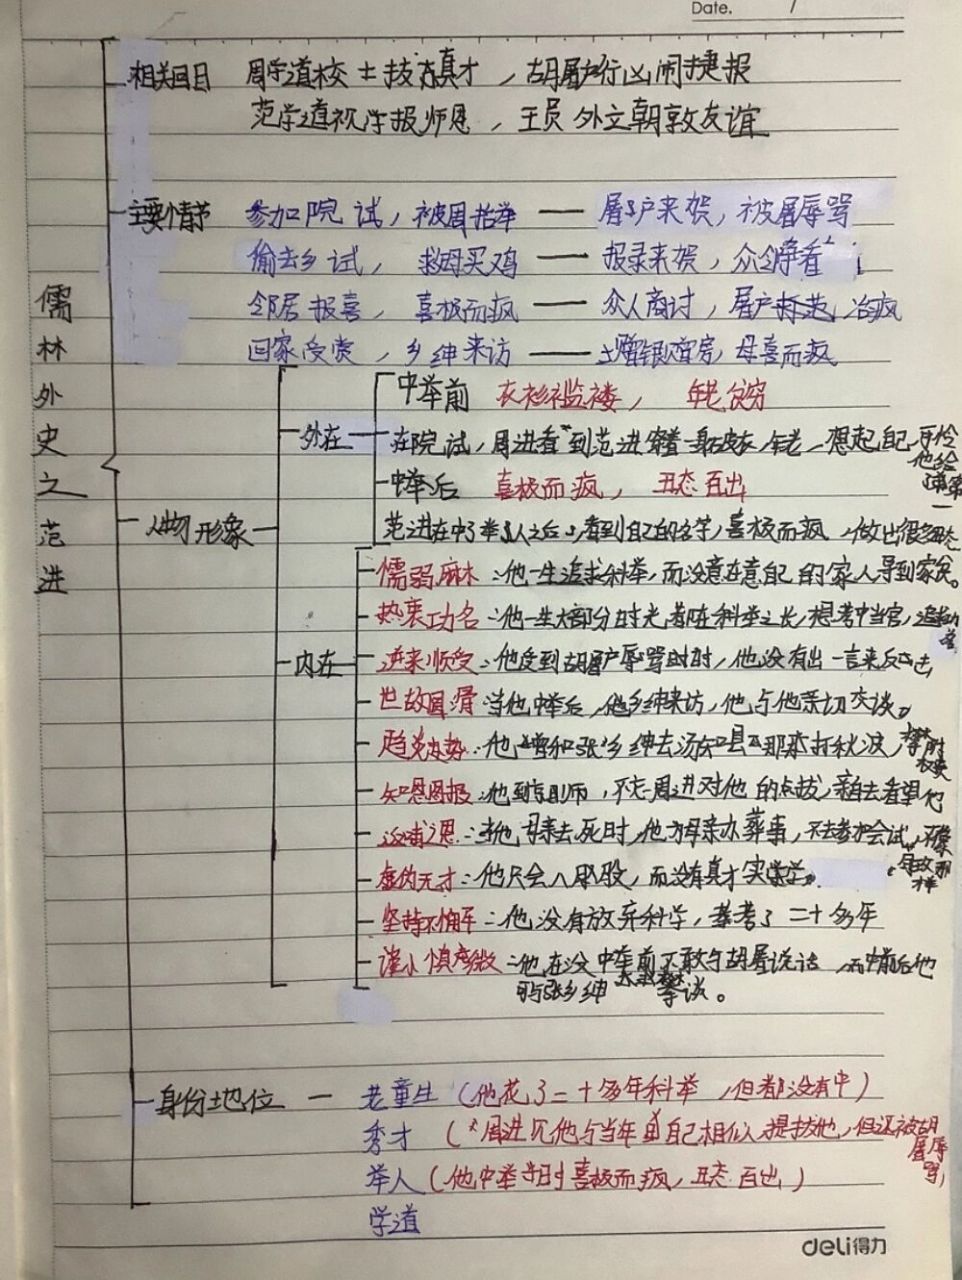 Date. /
相关回目 周学道校士拔真才，胡屠户行凶闹捷报
范学道视学报师恩，王员外立朝敦友谊
主要情节 参加院试，被周抬举 — 屠户来贺，被屠辱骂
偷去乡试，救母买鸡 — 报录来贺，众邻争看
邻居报喜，喜极而疯 — 众人商讨，屠户打范治疯
回家受赏，乡绅来访 — 赠银赠房，母喜而疯
儒林外史之范进
人物形象
外在
中举前 衣衫褴褛，年老贫穷
在院试，周进看到范进穿着一身破衣，年老，想起自己，可怜他给了第一
中举后 喜极而疯，丑态百出
范进在中了举人之后，看到自己的名字，喜极而疯，做出很多
内在
懦弱麻木：他一生追求科举，而没意在意自己的家人导到家贫。
热衷功名：他一生大部分时光都在科举之长，想考中当官，追
逆来顺受：他受到胡屠户辱骂时时，他没有出一言来反击
世故圆滑：当他中举后，他乡绅来访，他与他亲切交谈。
趋炎附势：他曾和张乡绅去汤知县那来打秋波，攀附权贵
知恩图报：他到京师，不忘周进对他的点拔，亲自去看望他
反哺之恩：当他母亲去死时，他为母亲办葬事，不去参加会试，
虚伪无才：他只会八股，而没有真才实学。
坚持不懈：他没有放弃科学，考了二十多年
谨小慎微：他在没中举前不敢与胡屠说话，而中举后他
可与张乡绅攀谈。
身份地位 — 老童生（他花了二十多年科举，但都没有中）
秀才（周进见他与当年自己相似，提拔他，但还被胡屠辱骂）
举人（他中举时喜极而疯，丑态百出）
学道
deli得力